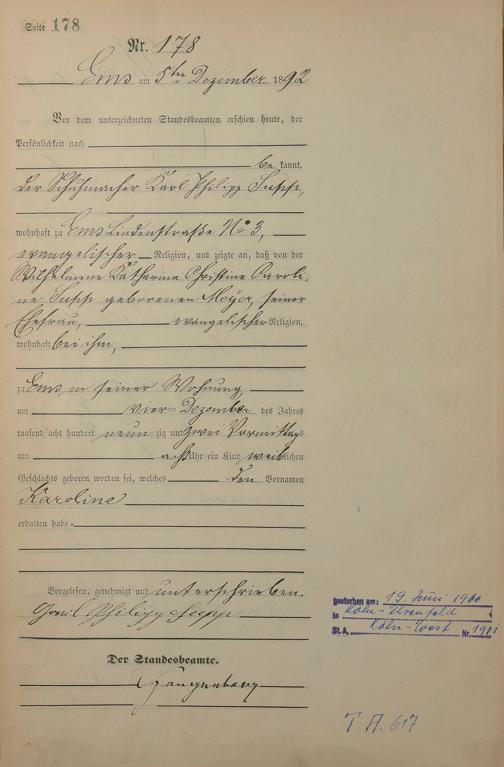 Seite 178
Nr. 178
Ems am 5ten Dezember 1892
Vor dem unterzeichneten Standesbeamten erschien heute, der
Persönlichkeit nach
be kannt,
der Schuhmacher Karl Philipp
wohnhaft zu Ems Lindenstraße No 3,
evangelischer Religion, und zeigte an, daß von der
Wilhelmine Katharine Christine Caroli-
ne, geborenen Meyer, seiner
Ehefrau, evangelischer Religion,
wohnhaft bei ihm,
zu Ems in seiner Wohnung,
am vier Dezember des Jahres
tausend acht hundert neun zig und zwei Vormittags
um acht Uhr ein Kind weib lichen
Geschlechts geboren worden sei, welches den Vornamen
Karoline
erhalten habe.
Vorgelesen, genehmigt und unterschrieben.
Philipp
Der Standesbeamte.
gestorben am: 19. Juni 1960
in Köln-Ehrenfeld
St.A. Köln-West Nr.
T. A. 617